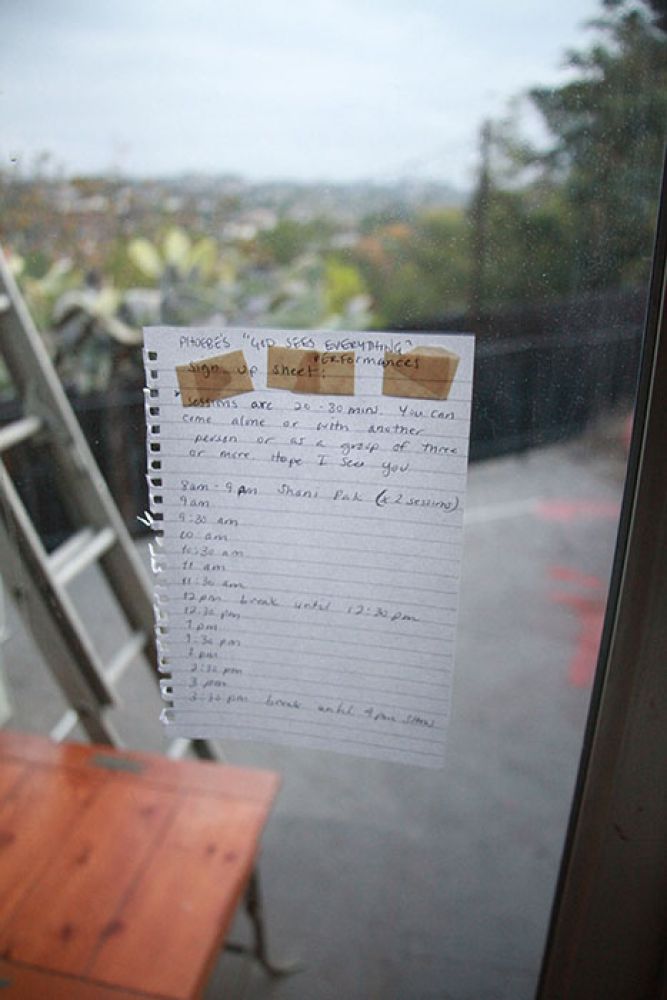 PHOEBE'S "GOD SEES EVERYTHING"
PERFORMANCES
sign up sheet:
sessions are 20-30 mins. You can
come alone or with another
person or as a group of three
or more. Hope I see you
8am - 9pm Shani (x 2 sessions)
9am
9:30 am
10 am
10:30 am
11 am
11:30 am
12 pm break until 12:30 pm
12:30 pm
1 pm
1:30 pm
2 pm
2:30 pm
3 pm
3:30 pm break until 4pm show